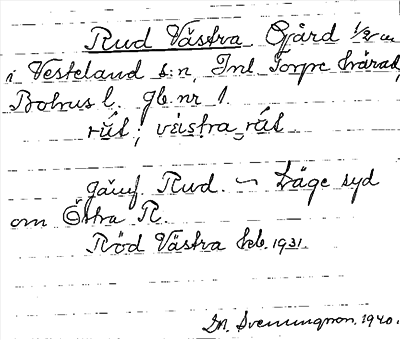 Rud Västra Gård 1/2 m
i Vesteland s:n, Inl Torpe härad,
Bohus l. gb. nr 1.
rʉ́t ; vàstra rʉ́t
Jämf Rud. – Läge syd
om Östra R.
Röd Västra Jrb. 1931.
M. Svenungsson. 1940.